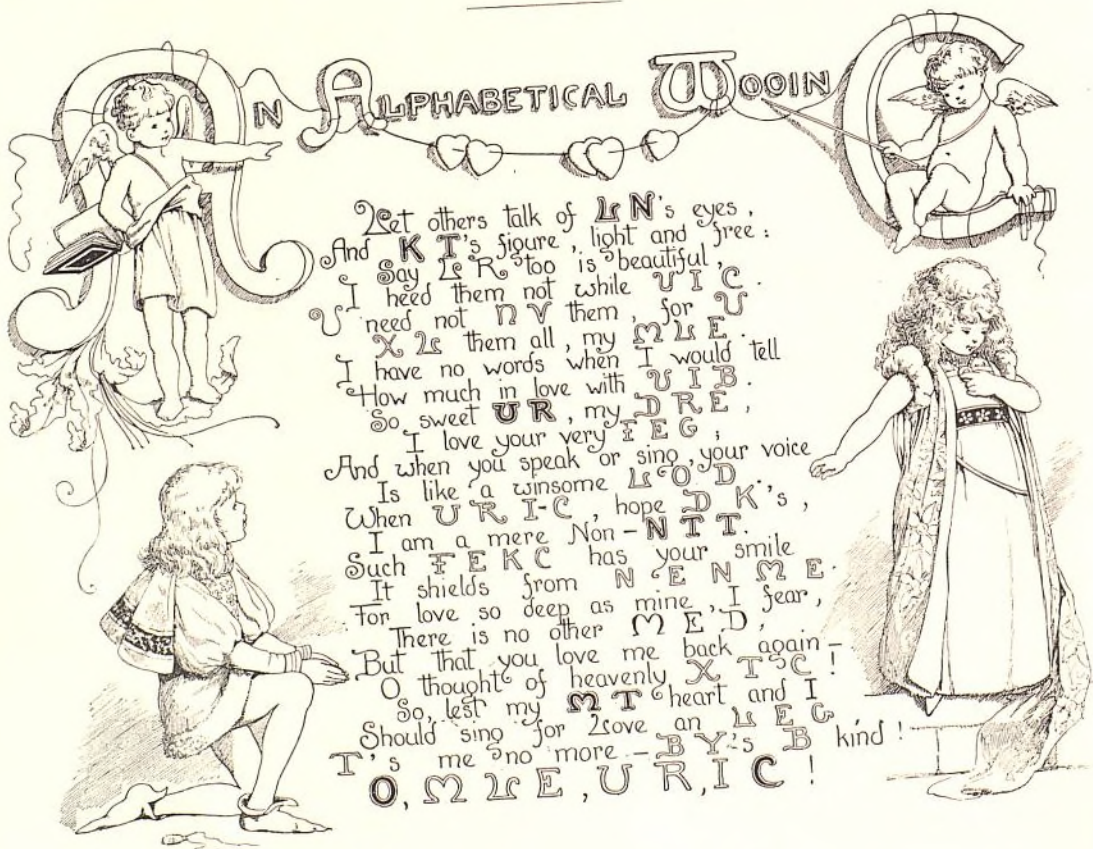 AN ALPHABETICAL WOOING
Let others talk of L N's eyes,
And K T's figure, light and free:
Say L R too is beautiful,
I heed them not while U I C.
U need not N V them, for U
X L them all, my M L E.
I have no words when I would tell
How much in love with U I B.
So sweet U R, my D R E,
I love your very F E G;
And when you speak or sing, your voice
Is like a winsome L O D.
When U R I-C, hope D K's,
I am a mere Non-N T T.
Such F E K C has your smile
It shields from N E N M E.
For love so deep as mine, I fear,
There is no other M E D,
But that you love me back again—
O thought of heavenly X T C!
So, lest my M T heart and I
Should sing for Love an L E G
T's me no more—B Y's B kind!
O, M L E, U R, I C!